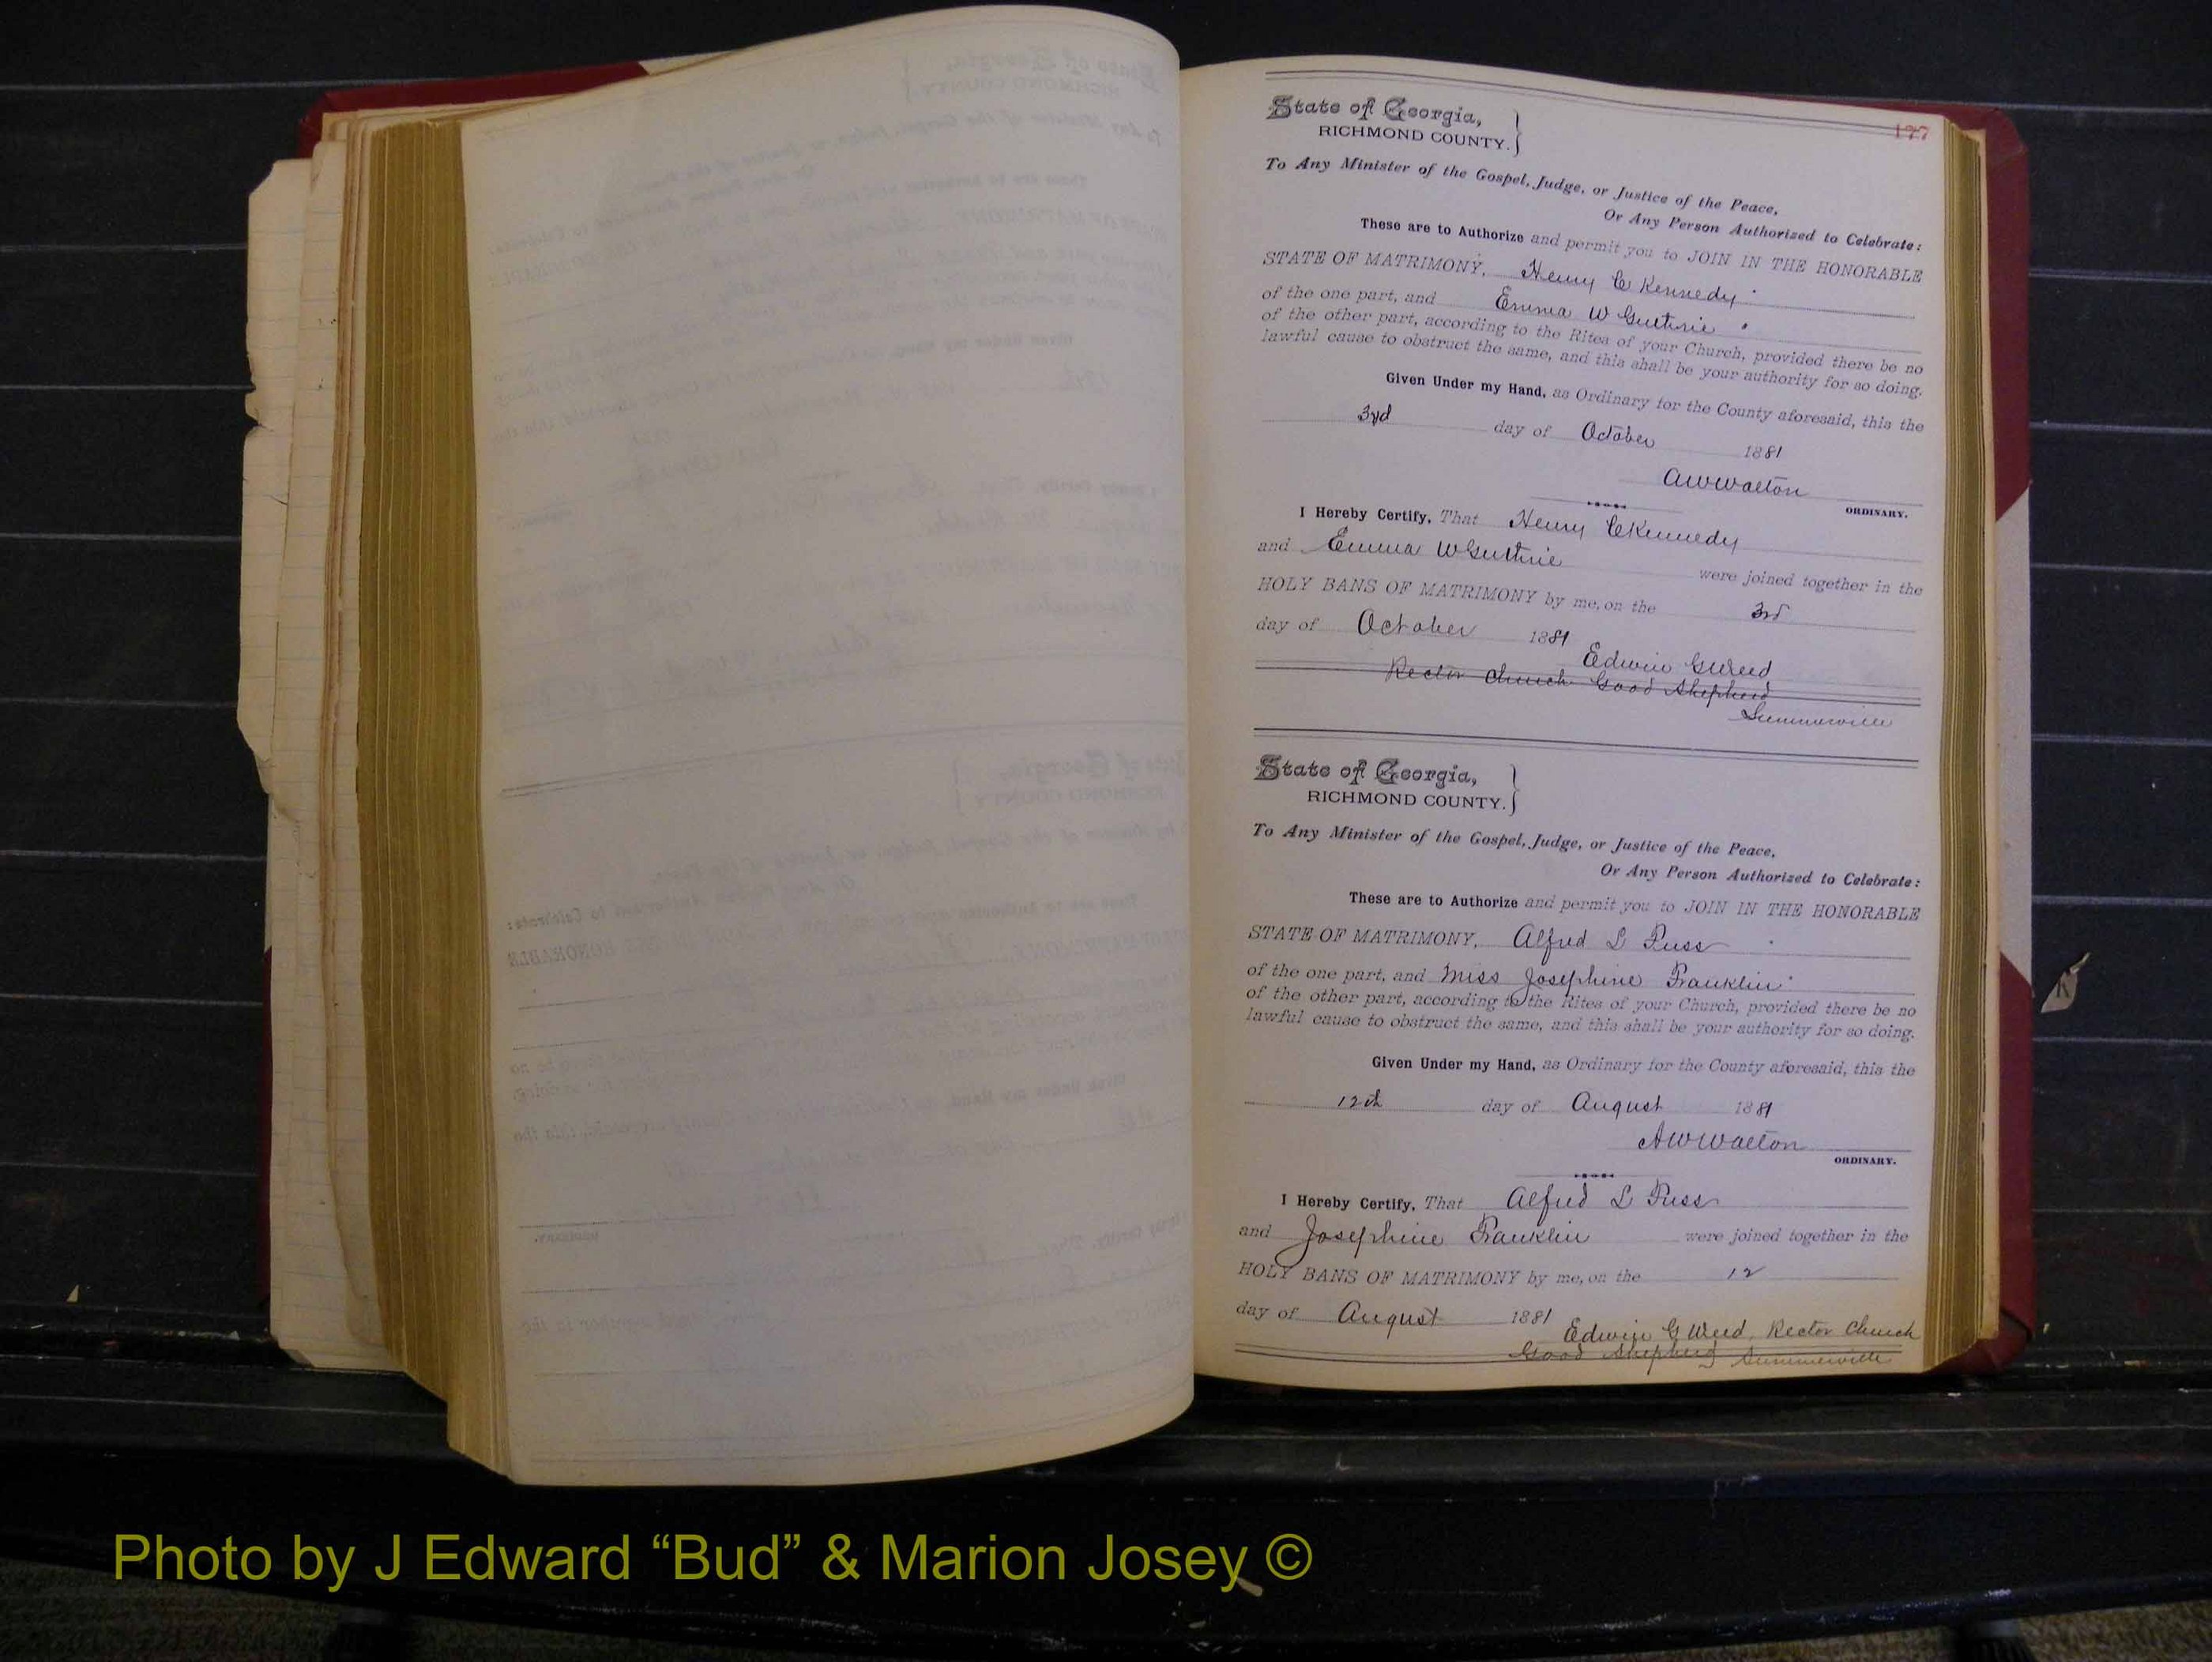 177
State of Georgia,
RICHMOND COUNTY.
To Any Minister of the Gospel, Judge, or Justice of the Peace,
Or Any Person Authorized to Celebrate:
These are to Authorize and permit you to JOIN IN THE HONORABLE
STATE OF MATRIMONY, Henry C Kennedy
of the one part, and Emma W Guthrie
of the other part, according to the Rites of your Church, provided there be no
lawful cause to obstruct the same, and this shall be your authority for so doing.
Given Under my Hand, as Ordinary for the County aforesaid, this the
3rd day of October 1881
AWWalton
ORDINARY.
I Hereby Certify, That Henry C Kennedy
and Emma W Guthrie were joined together in the
HOLY BANS OF MATRIMONY by me, on the 3rd
day of October 1881
Edwin G Weed
Rector Church Good Shepherd
Summerville
State of Georgia,
RICHMOND COUNTY.
To Any Minister of the Gospel, Judge, or Justice of the Peace,
Or Any Person Authorized to Celebrate:
These are to Authorize and permit you to JOIN IN THE HONORABLE
STATE OF MATRIMONY, Alfred L Fuss
of the one part, and Miss Josephine Franklin
of the other part, according to the Rites of your Church, provided there be no
lawful cause to obstruct the same, and this shall be your authority for so doing.
Given Under my Hand, as Ordinary for the County aforesaid, this the
12th day of August 1881
AWWalton
ORDINARY.
I Hereby Certify, That Alfred L Fuss
and Josephine Franklin were joined together in the
HOLY BANS OF MATRIMONY by me, on the 12
day of August 1881
Edwin G Weed Rector Church
Good Shepherd Summerville
Photo by J Edward “Bud” & Marion Josey ©